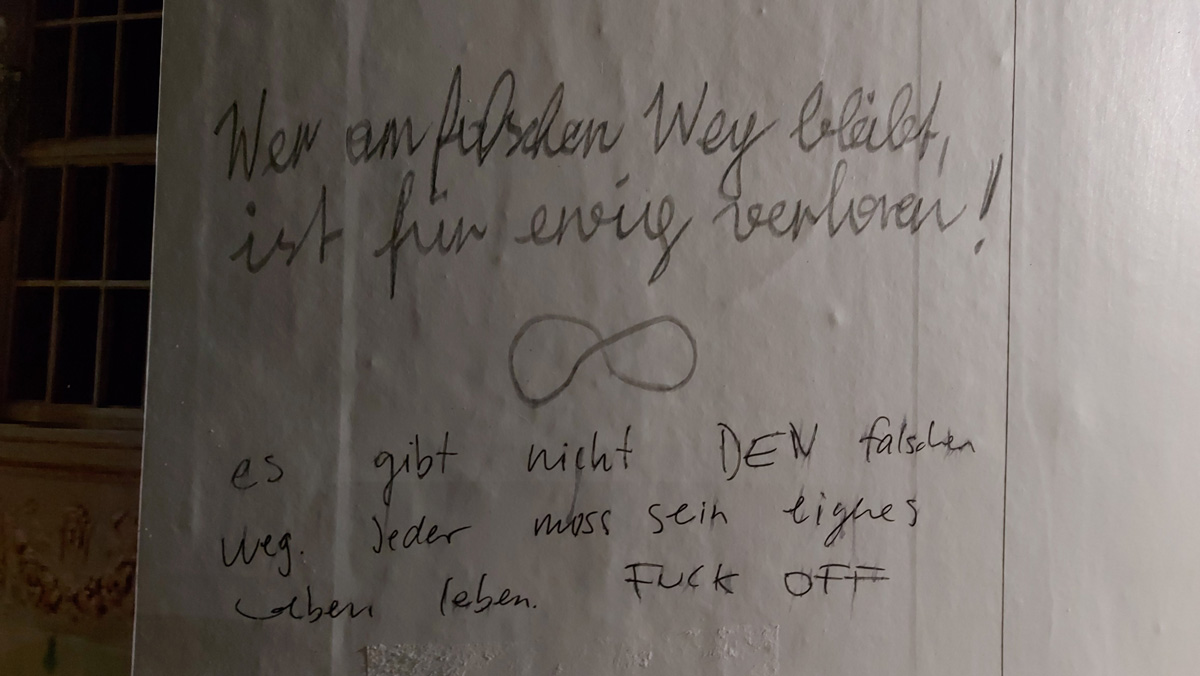 Wer am falschen Weg bleibt,
ist für ewig verloren!
es gibt nicht DEN falschen
weg. Jeder muss sein eignes
Leben leben. FUCK OFF